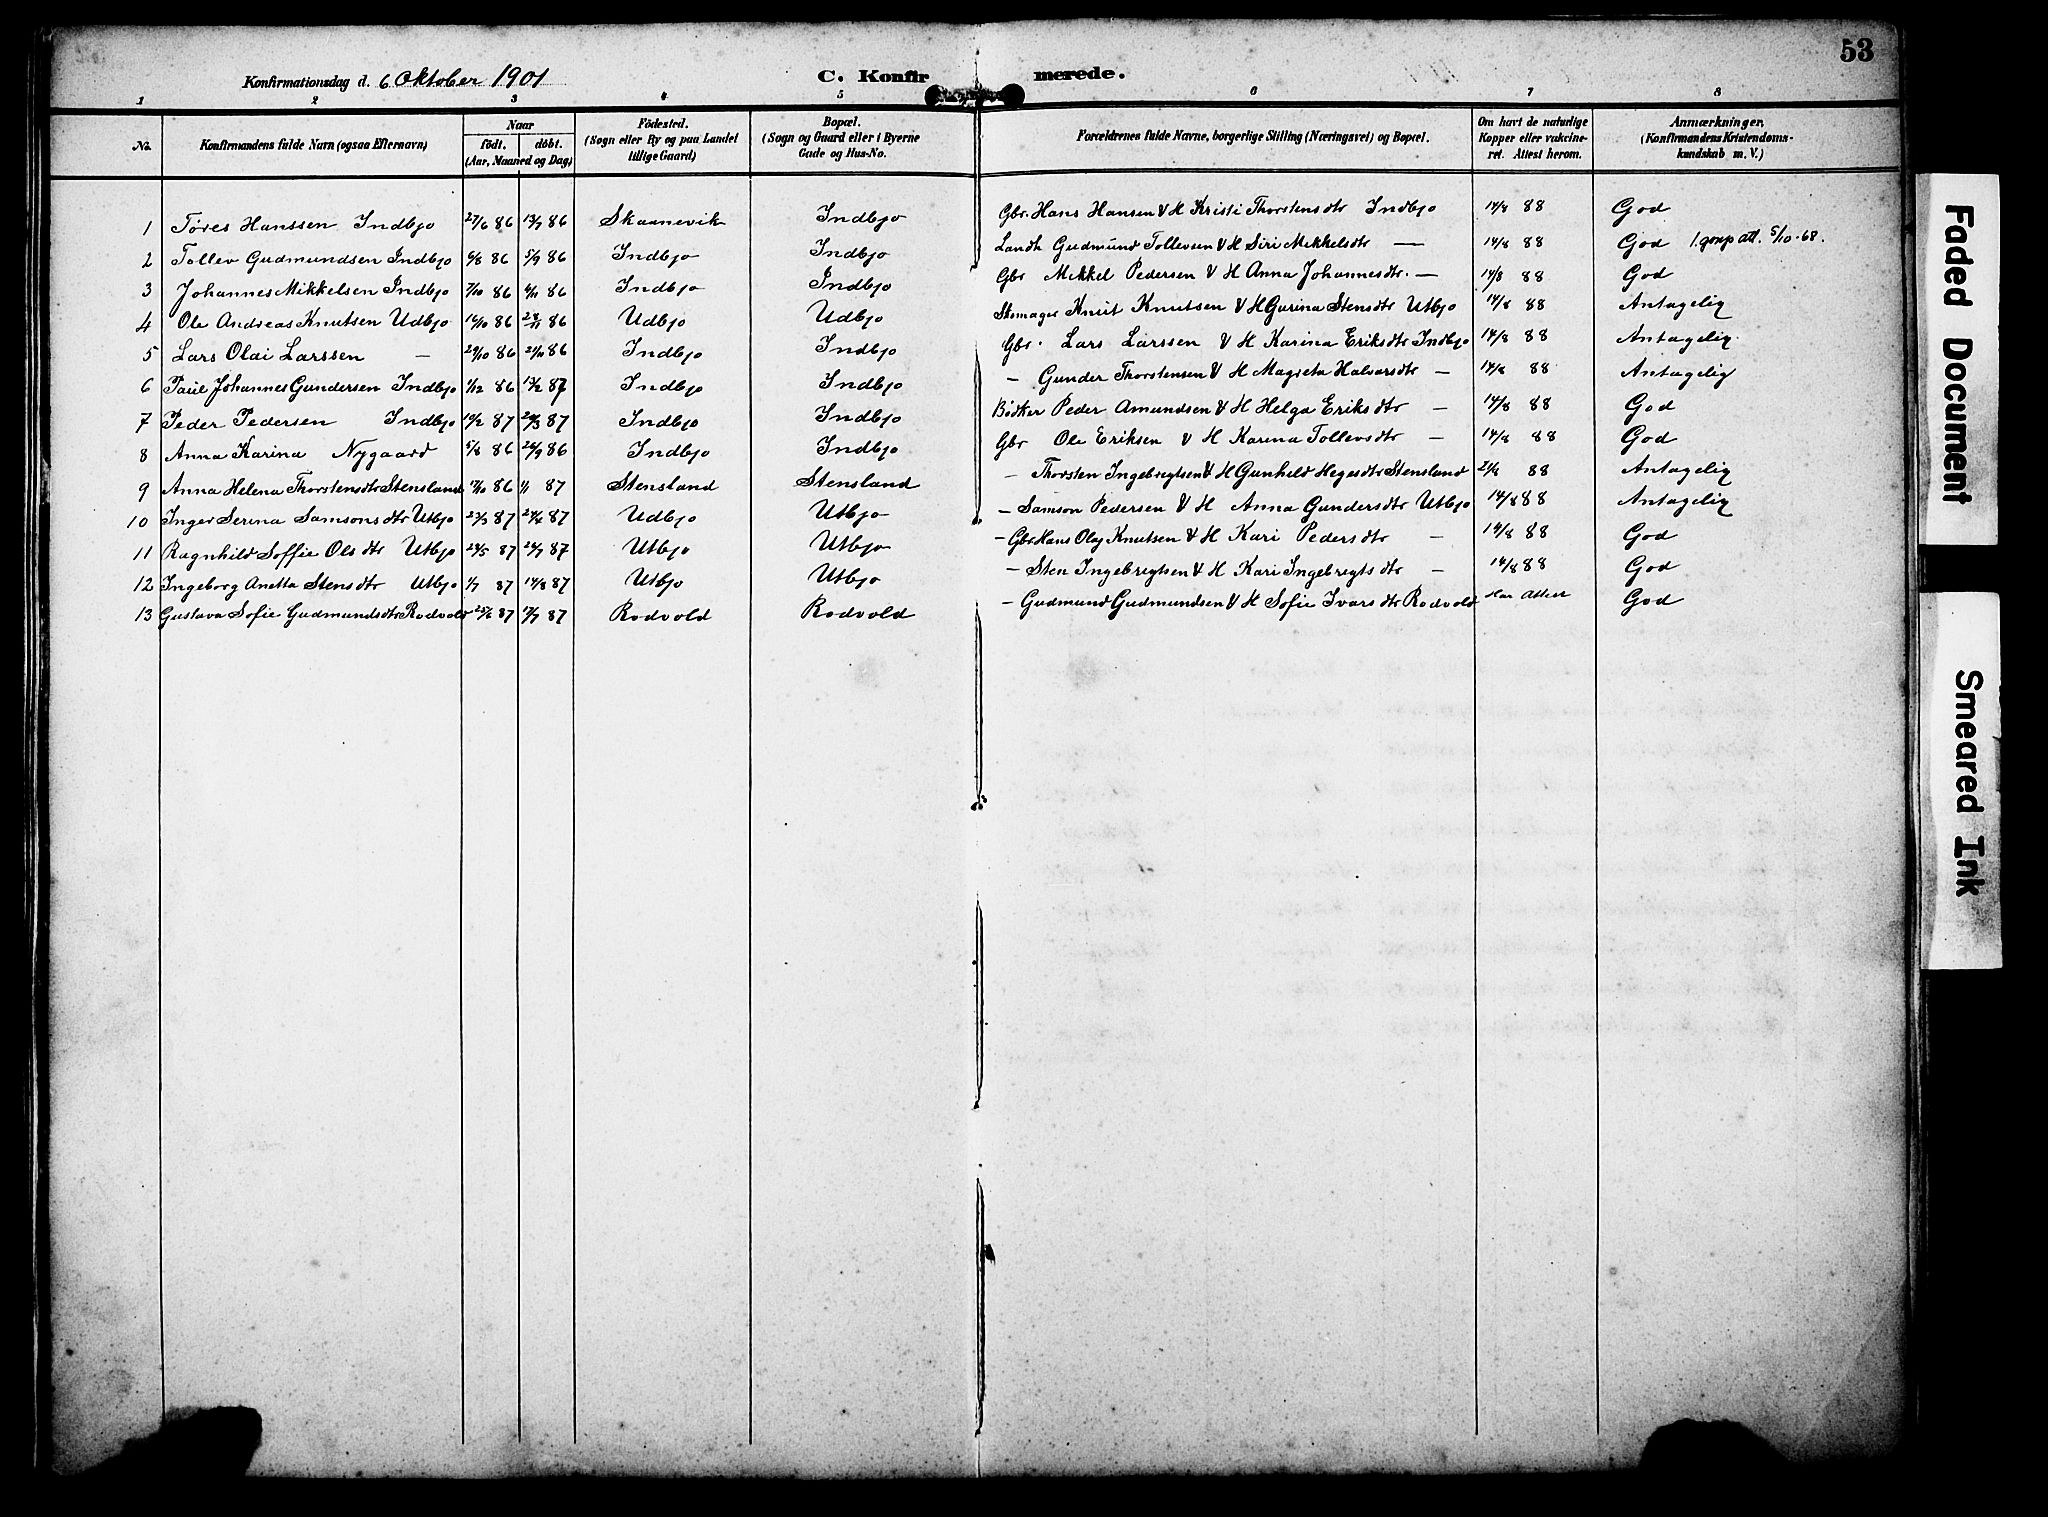 53
Konfirmationsdag d. 6 Oktober 1901
C. Konfirmerede.
1 2 3 4 5 6 7 8
No. Konfirmandens fulde Navn (ogsaa Efternavn) Naar födt. döbt. (Aar, Maaned og Dag) Födested. (Sogn eller By og paa Landet tillige Gaard) Bopæl. (Sogn og Gaard eller i Byerne Gade og Hus-No. Forældrenes fulde Navne, borgerlige Stilling (Næringsvei) og Bopæl. Om havt de naturlige Kopper eller vakcineret. Attest herom. Anmærkninger. (Konfirmandens Kristendomskundskab m. V.)
1 Töres Hanssen Indbjo 27/6 86 13/7 86 Skaanevik Indbjo Gbr. Hans Hansen & H Kristi Thorstensdtr Indbjo 14/8 88 God
2 Tollev Gudmundsen Indbjo 6/8 86 5/9 86 Indbjo Indbjo Landh Gudmund Tollevsen & H Siri Mikkelsdtr — 14/8 88 God 1. gang att. 5/10-68.
3 Johannes Mikkelsen Indbjo 7/10 86 4/11 86 Indbjo Indbjo Gbr Mikkel Pedersen & H Anna Johannesdtr. — 14/8 88 God
4 Ole Andreas Knutsen Udbjo 16/10 86 28/11 86 Udbjo Udbjo Skomager Knut Knutsen & H Gurina Stensdtr Utbjo 14/8 88 Antagelig
5 Lars Olai Larssen — 86 86 Indbjo Indbjo Gbr. Lars Larssen & H Karina Eriksdtr Indbjo 14/8 88 Antagelig
6 Paul Johannes Gundersen Indbjo 1/12 86 13/2 87 Indbjo Indbjo — Gunder Thorstensen & H Magreta Halvarsdtr — 14/8 88 Antagelig
7 Peder Pedersen Indbjo 87 87 Indbjo Indbjo Bödker Peder Amundsen & H Helga Eriksdtr — 14/8 88 God
8 Anna Karina Nygaard 5/8 86 26/9 86 Indbjo Indbjo Gbr Ole Eriksen & H Karina Tollevsdtr — 14/8 88 God
9 Anna Helena Thorstensdtr Stensland 86 1/1 87 Stensland Stensland — Thorsten Ingebregtsen & H Gunhild Hegesdtr Stensland 88 Antagelig
10 Inger Serina Samsonsdtr Utbjo 23/3 87 24/4 87 Udbjo Utbjo — Samson Pedersen & H Anna Gundersdtr Utbjo 14/8 88 Antagelig
11 Ragnhild Soffie Olsdtr Utbjo 87 24/7 87 Utbjo Utbjo — Gbr Hans Olaj Knutsen & H Kari Pedersdtr — 14/8 88 God
12 Ingeborg Anetta Stensdtr Utbjo 1/7 87 14/8 87 Utbjo Utbjo — Sten Ingebregtsen & H Kari Ingebregtsdtr — 14/8 88 God
13 Gustava Sofie Gudmundsdtr Rodvold 25/6 87 17/7 87 Rodvold Rodvold — Gudmund Gudmundsen & H Sofie Ivarsdtr Rodvold Har Attest God
Faded Document
Smeared Ink